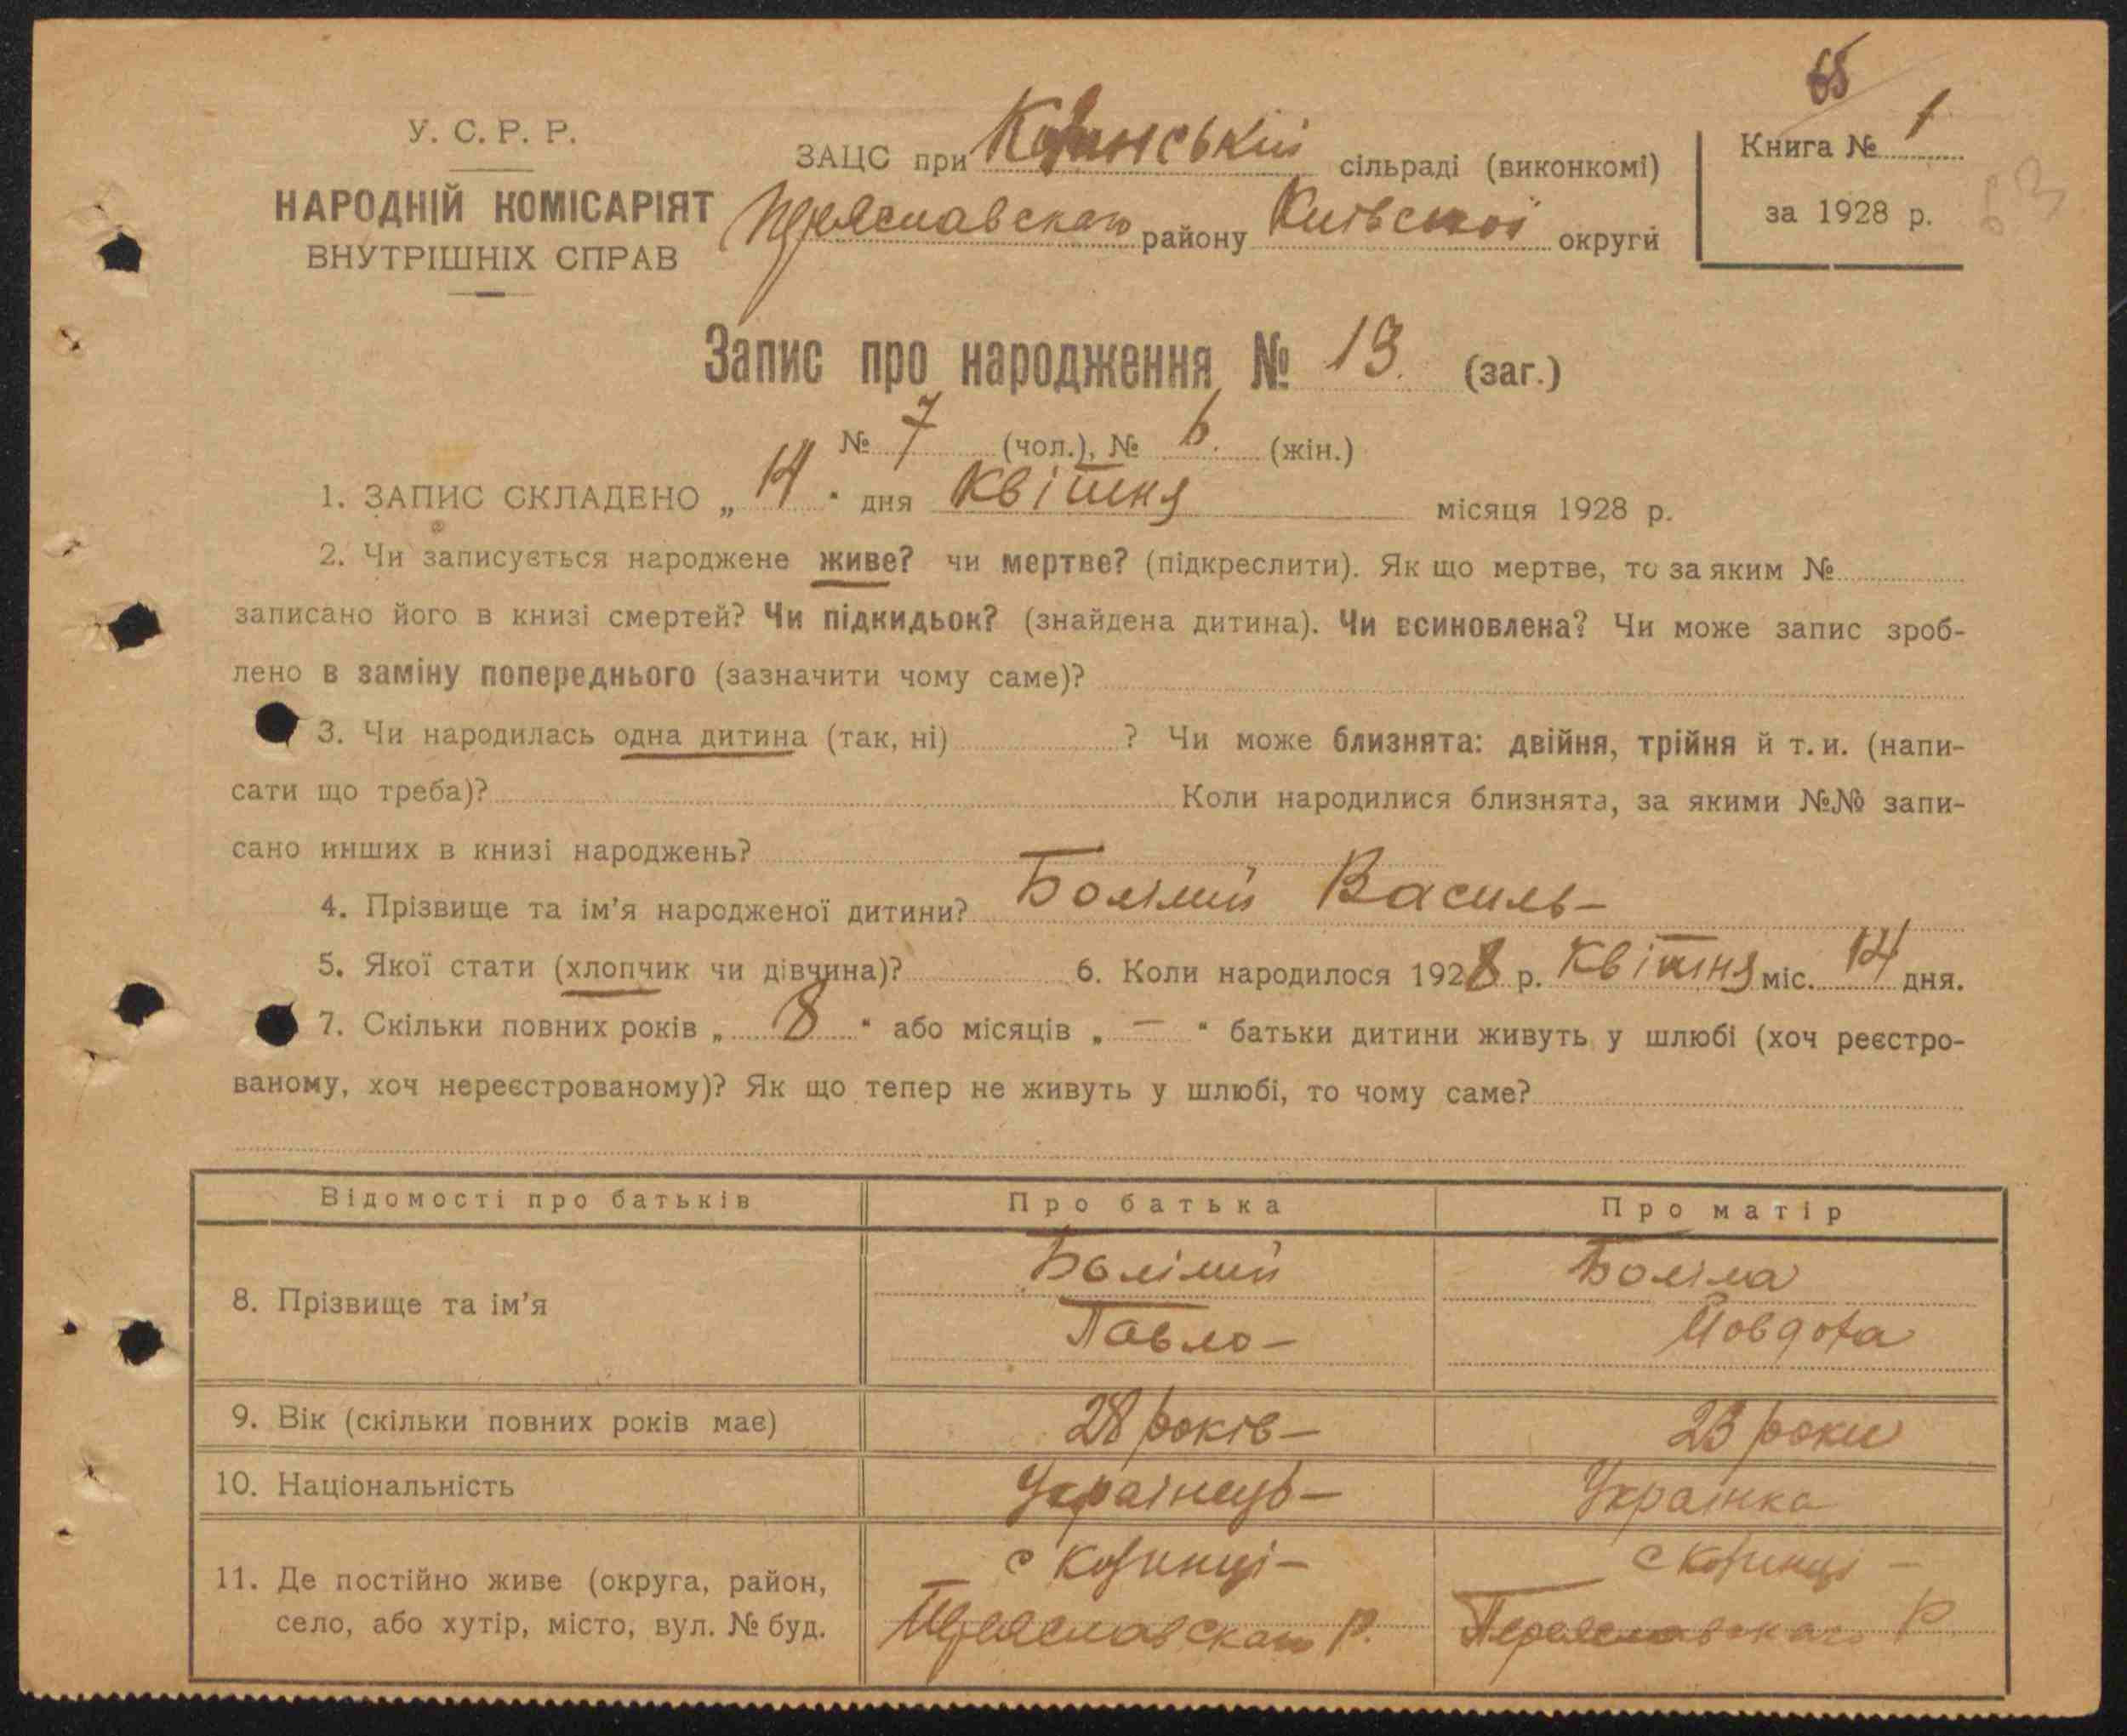 65
У. С. Р. Р.
НАРОДНІЙ КОМІСАРІЯТ
ВНУТРІШНІХ СПРАВ
ЗАЦС при Козинській сільраді (виконкомі)
Переяславскаго району Київської округи
Книга № 1
за 1928 р.
53
Запис про народження № 13. (заг.)
№ 7 (чол.), № 6. (жін.)
1. ЗАПИС СКЛАДЕНО „ 14 " дня Квітня місяця 1928 р.
2. Чи записується народжене живе? чи мертве? (підкреслити). Як що мертве, то за яким №
записано його в книзі смертей? Чи підкидьок? (знайдена дитина). Чи всиновлена? Чи може запис зроб-
лено в заміну попереднього (зазначити чому саме)?
3. Чи народилась одна дитина (так, ні) ? Чи може близнята: двійня, трійня й т. и. (напи-
сати що треба)? Коли народилися близнята, за якими №№ запи-
сано инших в книзі народжень?
4. Прізвище та ім'я народженої дитини? Болілий Василь –
5. Якої стати (хлопчик чи дівчина)? 6. Коли народилося 1928 р. Квітня міс. 14 дня.
7. Скільки повних років „ 8 " або місяців „ — " батьки дитини живуть у шлюбі (хоч реєстро-
ваному, хоч нереєстрованому)? Як що тепер не живуть у шлюбі, то чому саме?
Відомості про батьків Про батька Про матір
8. Прізвище та ім'я
Болілий Боліла
Павло – Йовдоха
9. Вік (скільки повних років має) 28 років – 23 роки
10. Національність Українець – Українка
11. Де постійно живе (округа, район,
село, або хутір, місто, вул. № буд.
с Козинці – с Козинці –
Переяславскаго р. Переяславскаго р